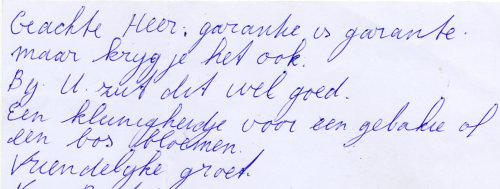 Geachte Heer. garantie is garantie.
maar kryg je het ook.
By U. zit dit wel goed.
Een kleinigheidje voor een gebakje of
een bos bloemen.
Vriendelyke groet.